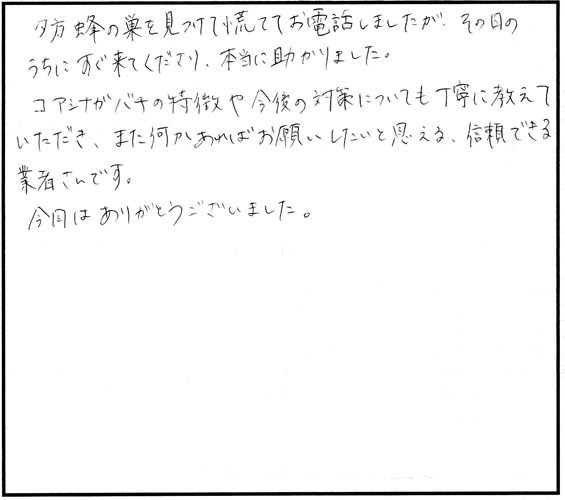 夕方蜂の巣を見つけて慌ててお電話しましたが、その日の
うちにすぐ来てくださり、本当に助かりました。
コアシナガバチの特徴や今後の対策についても丁寧に教えて
いただき、また何かあればお願いしたいと思える、信頼できる
業者さんです。
今回はありがとうございました。